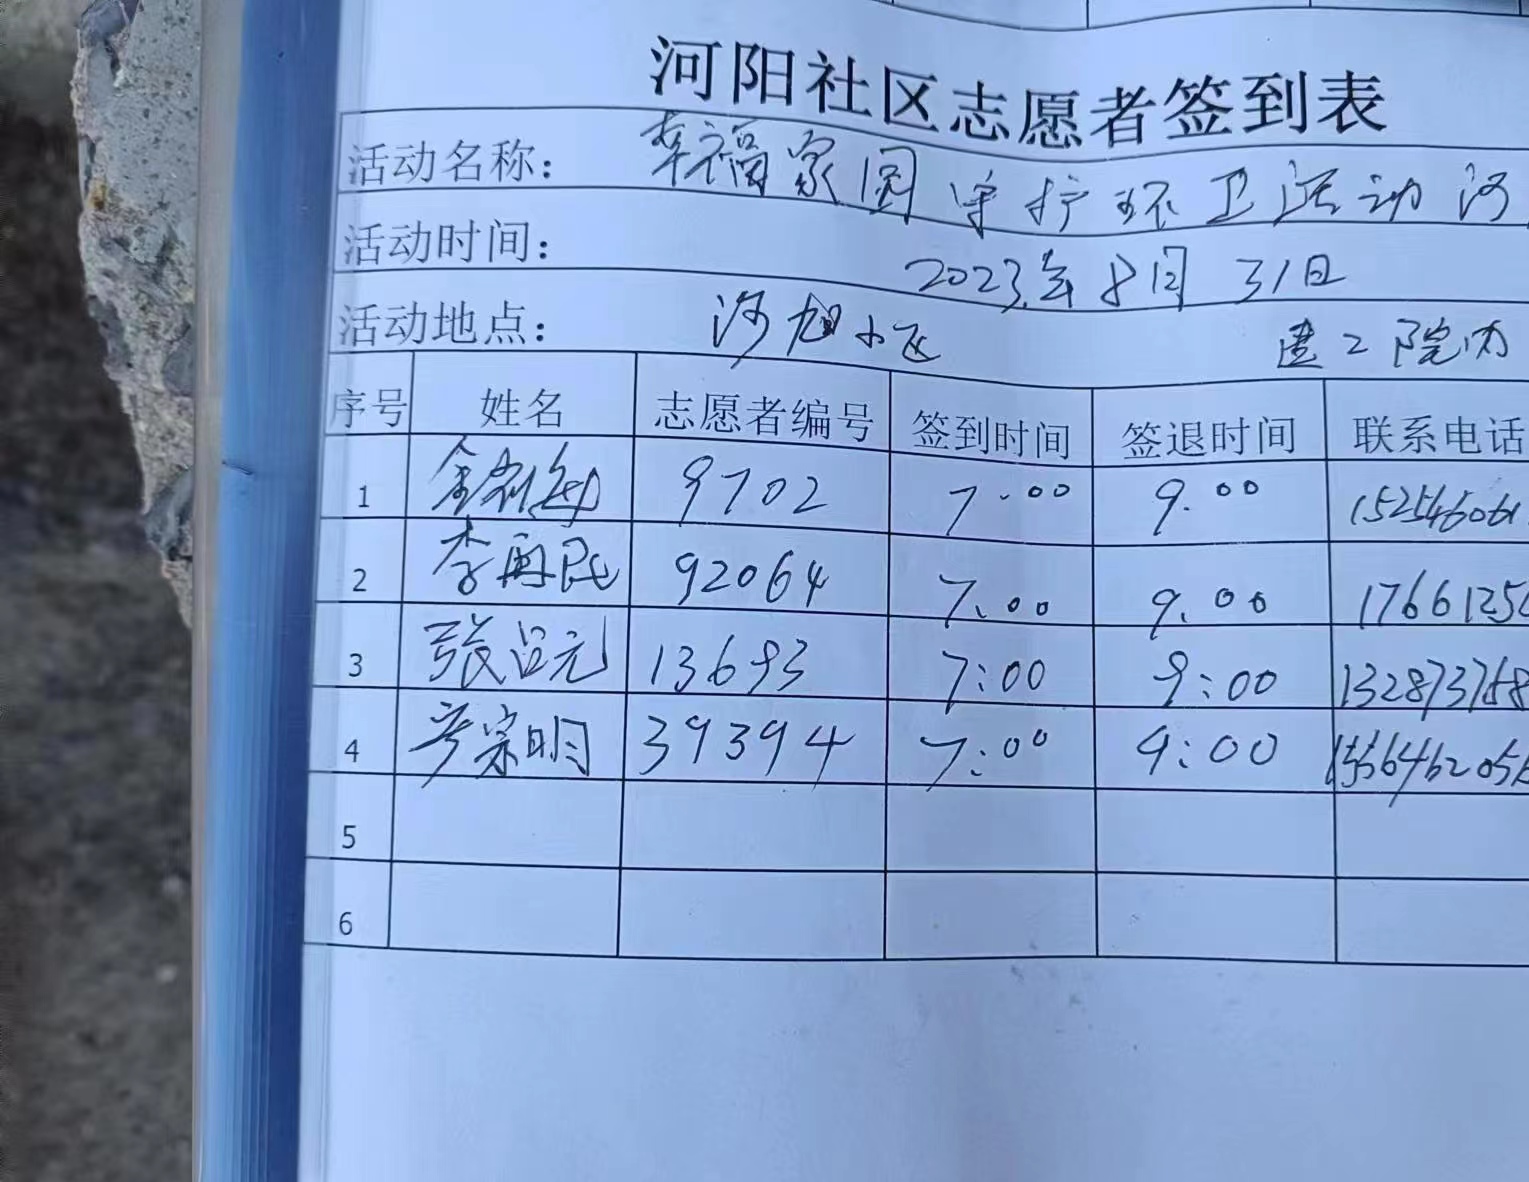 河阳社区志愿者签到表
活动名称： 幸福家园守护环卫活动 河
活动时间： 2023年8月31日
活动地点： 小区 建工院内
序号 姓名 志愿者编号 签到时间 签退时间 联系电话
1 9702 7:00 9:00
2 李 民 92064 7:00 9:00 1766125
3 张吕元 13693 7:00 9:00 1328737
4 宗明 39394 7:00 9:00
5
6